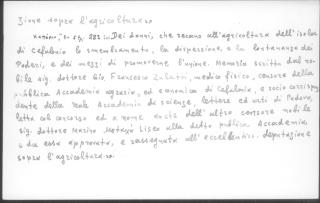 zione sopra l'agricoltura.
"Dei danni, che recano all'agricoltura dell'isola
di Cefalonia lo smembramento, la dispersione, e la lontananza dei
Poderi, e dei mezzi di promuovere l'unione. Memoria scritta dal no-
bile sig. dottore Gio. Francesco Zulatti, medico fisico, censore della
pubblica Accademia agraria, ed economica di Cefalonia, e socio corrispon
dente della reale Accademia di scienze, lettere ed arti di Padova,
letta col concorso ed a nome anche dell'altro censore nobile
sig. dottore Marino Metaxà Liseo alla detta pubblica Accademia
e da essa approvata, e rassegnata all'eccellentiss. deputazione
sopra l'agricoltura.